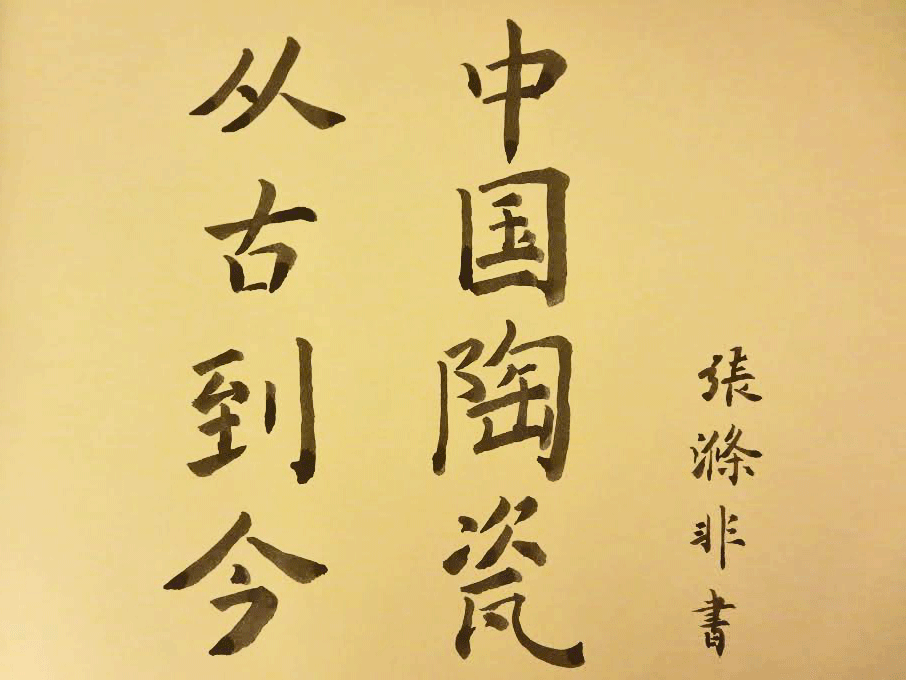 中国陶瓷
从古到今
張滌非書